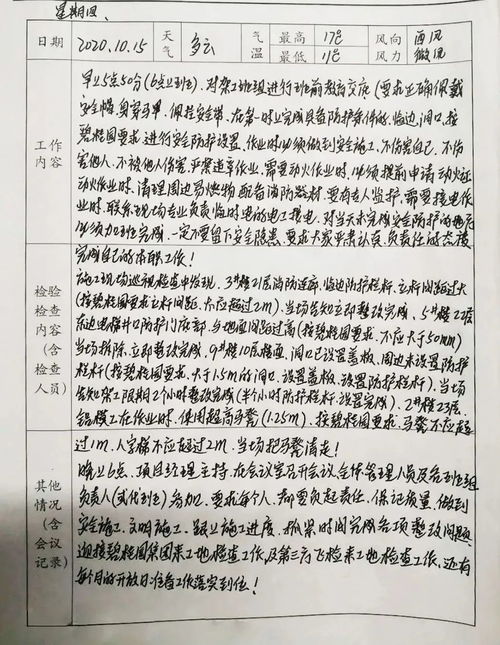 星期四
日期 2020.10.15 天气 多云 气温 最高 17℃ 风向 西风
最低 11℃ 风力 微风
工作内容
早上5点50分(6点上班)，对架工班组进行班前教育交底(要求正确佩戴
安全帽，身穿马甲，佩挂安全带，在第一时间完成具备防护条件的，临边，洞口，按
碧桂园要求，进行安全防护设置，作业时必须做到安全施工，不伤害自己，不伤
害他人，不被他人伤害，严禁违章作业，需要动火作业时，必须提前申请动火证
动火作业时，清理周边易燃物，配备消防器材，要有专人监护，需要接电作
业时，联系现场专业负责临时电的电工接电，对当天未完成安全防护的地方
必须加班完成，一定不要留下安全隐患，要求大家严肃认真，负责任的态度
完成自己的本职工作！
检验检查内容(含检查人员)
施工现场巡视检查中发现，3#楼21层消防连廊，临边防护栏杆，立杆间距过大
(按碧桂园要求立杆间距，不应超过2m)，当场告知立即整改完成，5#楼22层
东边电梯井口防护门底部，与地面间距过高(按碧桂园要求，不应大于50mm)
当场拆除，立即整改完成，9#楼10层楼道，洞口已设置盖板，周边未设置防护
栏杆(按碧桂园要求，大于1.5m的洞口，设置盖板，设置防护栏杆)，当场
告知架工限期2个小时整改完成(半个小时防护栏杆，设置完成)，2#楼23层
铝模工在作业时，使用超高马凳(1.25m)，按碧桂园要求，马凳不应超
过1m，人字梯不应超过2m，当场把马凳清走！
其他情况(含会议记录)
晚上6点，项目经理主持，在会议室召开会议，全体管理人员及各班组
负责人(或代班)参加，要求每个人，都要负起责任，保证质量，做到
安全施工，文明施工，跟上施工进度，抓紧时间完成各项整改问题
迎接碧桂园集团来工地检查工作，及第三方飞检来工地检查工作，还有
每个月的开放日，准备工作落实到位！